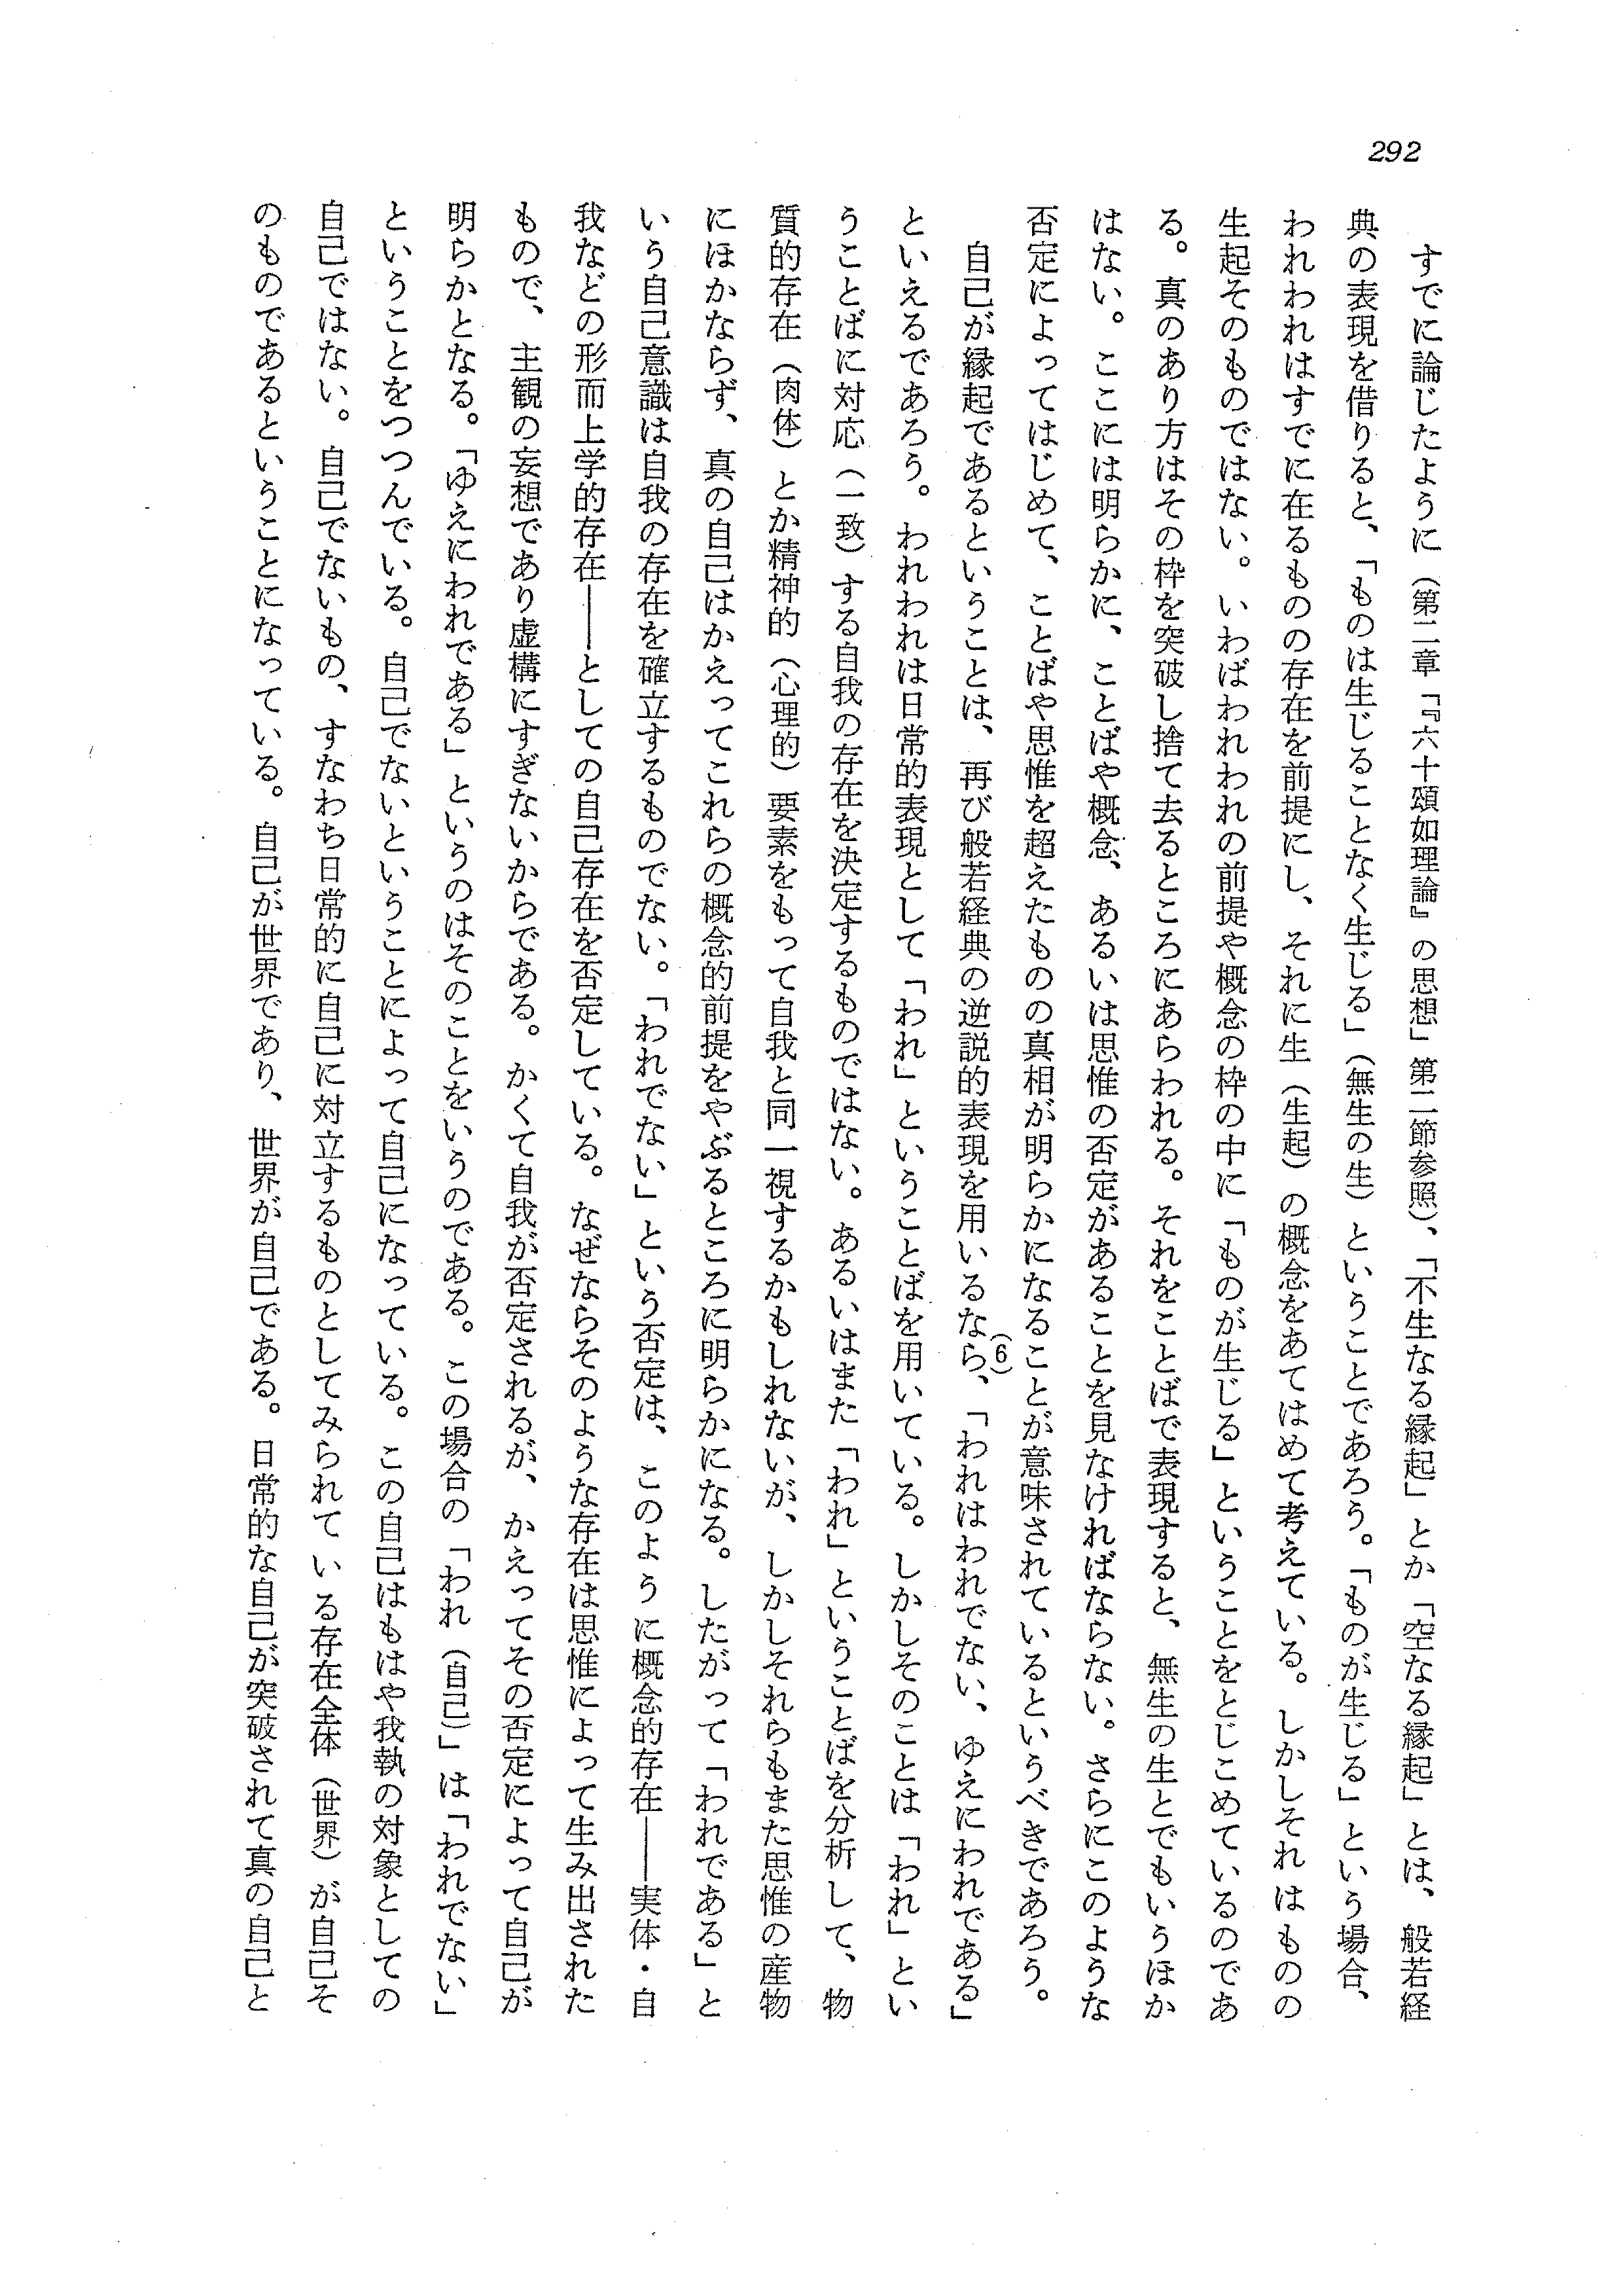 292
すでに論じたように（第二章『『六十頌如理論』の思想」第二節参照）、「不生なる縁起」とか「空なる縁起」とは、般若経
典の表現を借りると、「ものは生じることなく生じる」（無生の生）ということであろう。「ものが生じる」という場合、
われわれはすでに在るものの存在を前提にし、それに生（生起）の概念をあてはめて考えている。しかしそれはものの
生起そのものではない。いわばわれわれの前提や概念の枠の中に「ものが生じる」ということをとじこめているのであ
る。真のあり方はその枠を突破し捨て去るところにあらわれる。それをことばで表現すると、無生の生とでもいうほか
はない。ここには明らかに、ことばや概念、あるいは思惟の否定があることを見なければならない。さらにこのような
否定によってはじめて、ことばや思惟を超えたものの真相が明らかになることが意味されているというべきであろう。
自己が縁起であるということは、再び般若経典の逆説的表現を用いるなら、(6)「われはわれでない、ゆえにわれである」
といえるであろう。われわれは日常的表現として「われ」ということばを用いている。しかしそのことは「われ」とい
うことばに対応（一致）する自我の存在を決定するものではない。あるいはまた「われ」ということばを分析して、物
質的存在（肉体）とか精神的（心理的）要素をもって自我と同一視するかもしれないが、しかしそれらもまた思惟の産物
にほかならず、真の自己はかえってこれらの概念的前提をやぶるところに明らかになる。したがって「われである」と
いう自己意識は自我の存在を確立するものでない。「われでない」という否定は、このように概念的存在――実体・自
我などの形而上学的存在――としての自己存在を否定している。なぜならそのような存在は思惟によって生み出された
もので、主観の妄想であり虚構にすぎないからである。かくて自我が否定されるが、かえってその否定によって自己が
明らかとなる。「ゆえにわれである」というのはそのことをいうのである。この場合の「われ（自己）」は「われでない」
ということをつつんでいる。自己でないということによって自己になっている。この自己はもはや我執の対象としての
自己ではない。自己でないもの、すなわち日常的に自己に対立するものとしてみられている存在全体（世界）が自己そ
のものであるということになっている。自己が世界であり、世界が自己である。日常的な自己が突破されて真の自己と